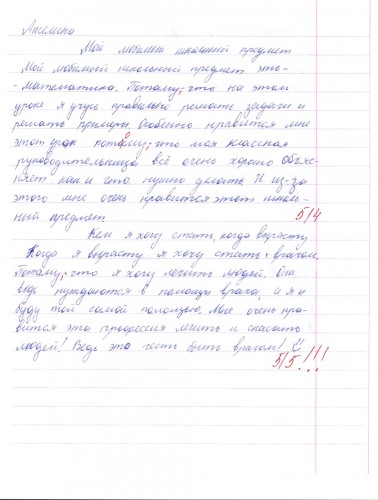 Ангелина
Мой любимый школьный предмет
Мой любимый школьный предмет это-
-математика. Потому, что на этом
уроке я учусь правильно решать задачи и
решать примеры. Особенно нравится мне
этот урок потому, что моя классная
руководительница всё очень хорошо объяс-
няет как и что нужно делать. И из-за
этого мне очень нравится этот школь-
ный предмет 5/4
Кем я хочу стать, когда вырасту
Когда я вырасту я хочу стать врачом.
Потому, что я хочу лечить людей. Они
ведь нуждаются в помощи врача, а я и
буду той самой помощью. Мне очень нра-
вится эта профессия лечить и спасать
людей! Ведь это честь быть врачом!
5/5!!!